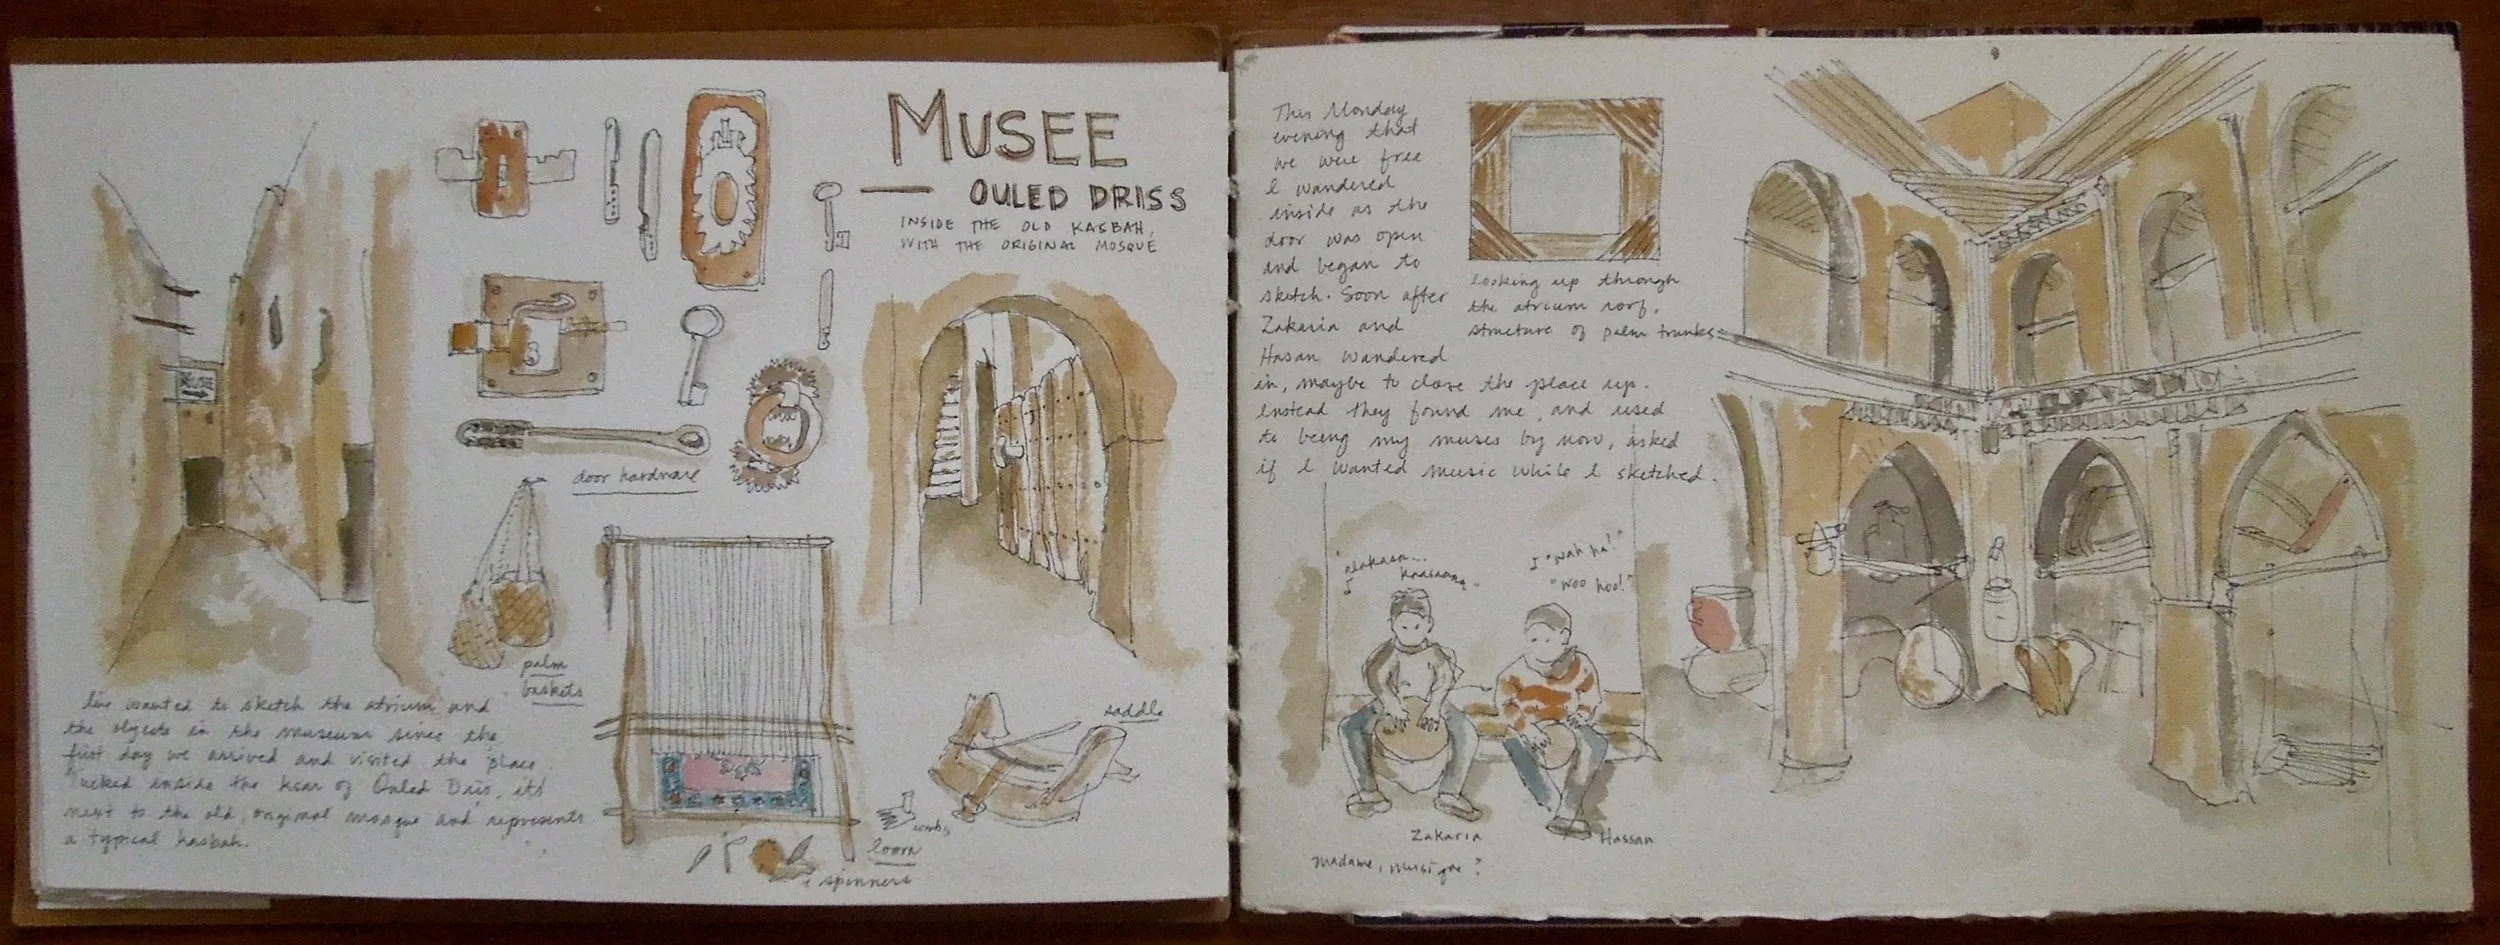 MUSEE
— OULED DRISS
INSIDE THE OLD KASBAH,
WITH THE ORIGINAL MOSQUE
MUSEE
door hardware
palm
baskets
I've wanted to sketch the atrium and
the objects in the museum since the
first day we arrived and visited the place.
Tucked inside the ksar of Ouled Driss, it's
next to the old, original mosque and represents
a typical kasbah.
saddle
combs
loom
spinners
This Monday
evening that
we were free
I wandered
inside as the
door was open
and began to
sketch. Soon after
Zakaria and
Hasan wandered
in, maybe to close the place up.
Instead they found me, and used
to being my muses by now, asked
if I wanted music while I sketched.
looking up through
the atrium roof,
structure of palm trunks
"wah ha!"
"woo hoo!"
Zakaria
Hassan
madame, musique?